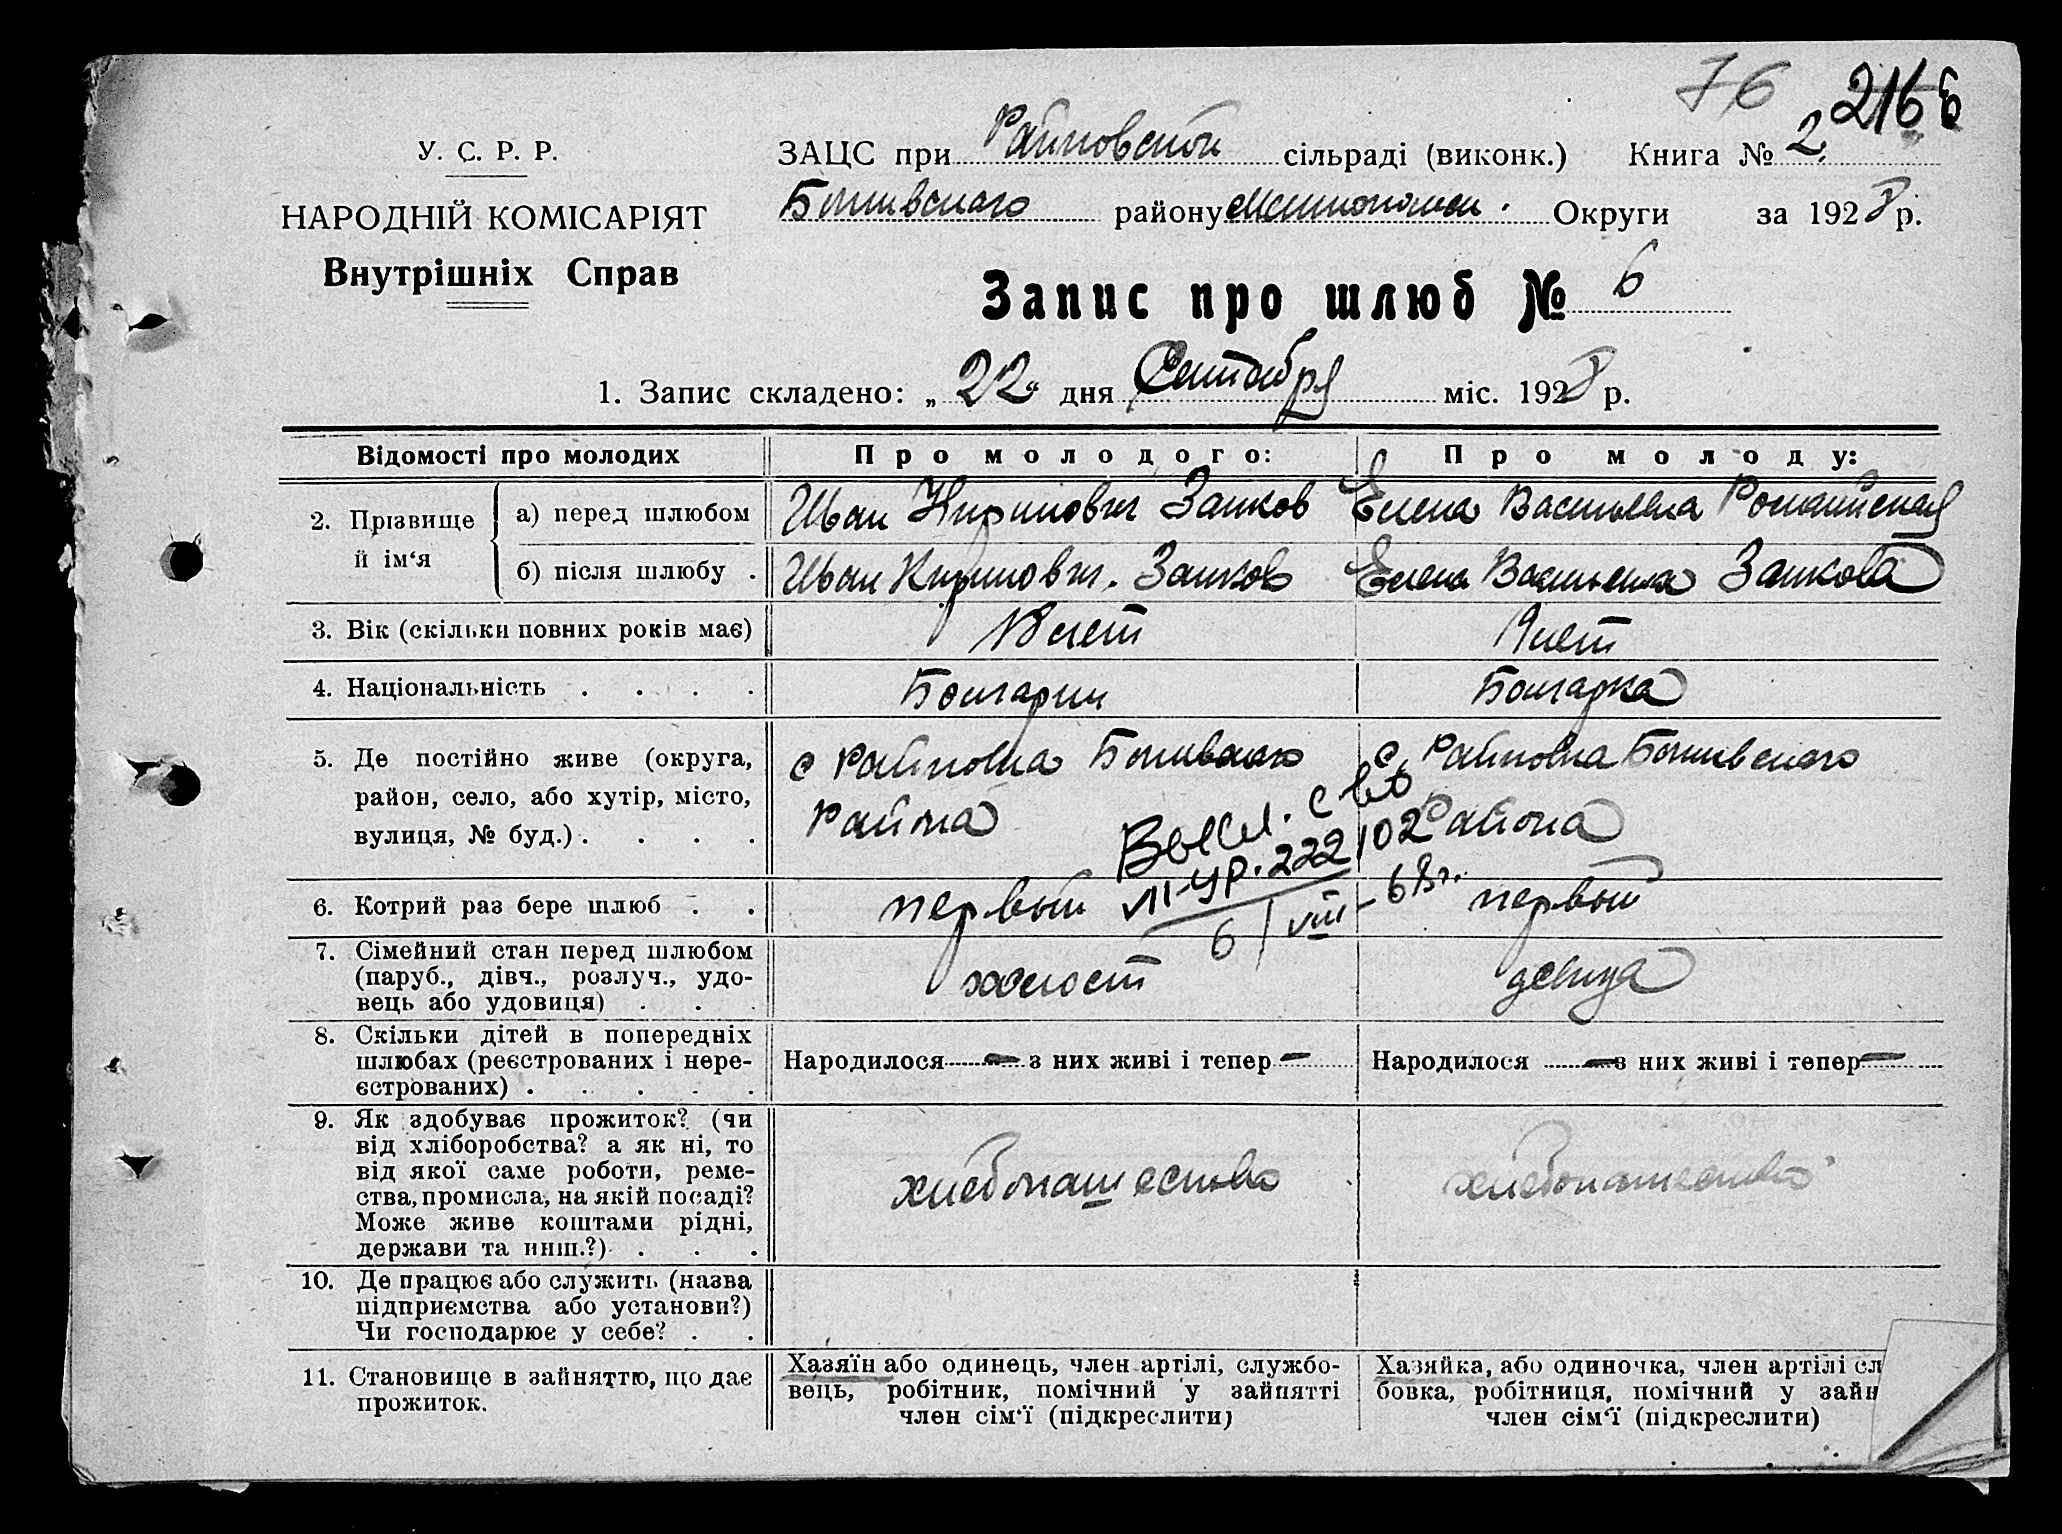 76 216
У. С. Р. Р.
НАРОДНІЙ КОМІСАРІЯТ
Внутрішніх Справ
ЗАЦС при Райновской сільраді (виконк.) Книга № 2
района Округи за 1928 р.
Запис про шлюб № 6
1. Запис складено: „22" дня Сентября міс. 1928 р.
Відомості про молодих
Про молодого:
Про молоду:
2. Прізвище й ім'я
а) перед шлюбом
Иван Кирилович Запков
Елена Васильевна
б) після шлюбу .
Иван Кирилович. Запков
Елена Васильевна Запкова
3. Вік (скільки повних років має)
18 лет
лет
4. Національність . . . .
Болгарин
Болгарка
5. Де постійно живе (округа,
район, село, або хутір, місто,
вулиця, № буд.) . . . .
с Райновка
Района
с. Райновка
Района
Выд. св-во
III-УР. 222102
6/VIII-68г.
6. Котрий раз бере шлюб . .
первый
первый
7. Сімейний стан перед шлюбом
(паруб., дівч., розлуч., удо-
вець або удовиця) . . .
холост
девица
8. Скільки дітей в попередніх
шлюбах (реєстрованих і нере-
єстрованих) . . . . .
Народилося — з них живі і тепер —
Народилося — з них живі і тепер —
9. Як здобуває прожиток? (чи
від хліборобства? а як ні, то
від якої саме роботи, реме-
ства, промисла, на якій посаді?
Може живе коштами рідні,
держави та инш.?) . . .
хлебопашество
хлебопашество
10. Де працює або служить (назва
підприємства або установи?)
Чи господарює у себе? . .
11. Становище в зайняттю, що дає
прожиток.
Хазяїн або одинець, член артілі, службо-
вець, робітник, помічний у зайнятті
член сім'ї (підкреслити)
Хазяйка, або одиночка, член артілі сл
бовка, робітниця, помічний у зайн
член сім'ї (підкреслити)